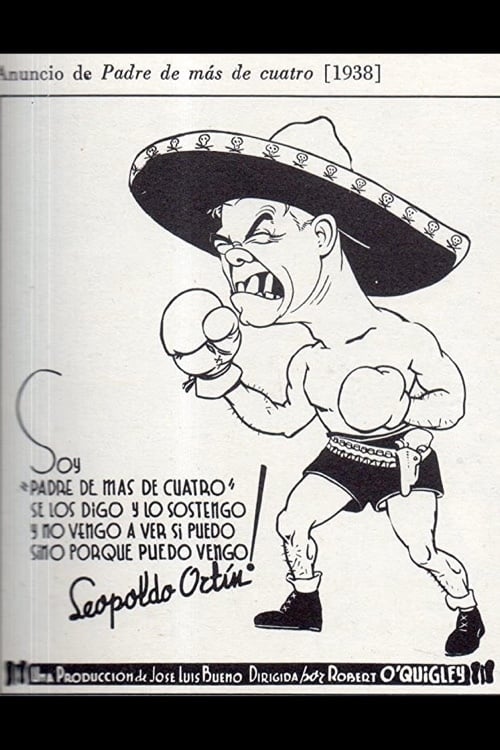 Anuncio de Padre de más de cuatro [1938]
Soy
"PADRE DE MAS DE CUATRO"
SE LOS DIGO Y LO SOSTENGO
Y NO VENGO A VER SI PUEDO
SINO PORQUE PUEDO VENGO!
Leopoldo Ortín
UNA PRODUCCION de JOSE LUIS BUENO DIRIGIDA por ROBERT O'QUIGLEY